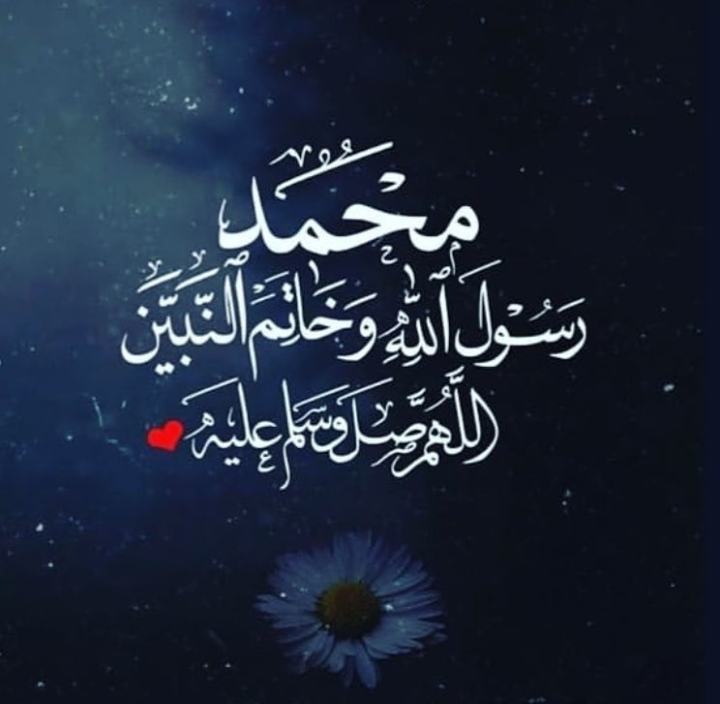 محمد
رَسُولَ ٱللَّهِ وَخَاتَمَ ٱلنَّبِيِّينَ
اللَّهُمَّ صَلِّ وَسَلِّم عليه